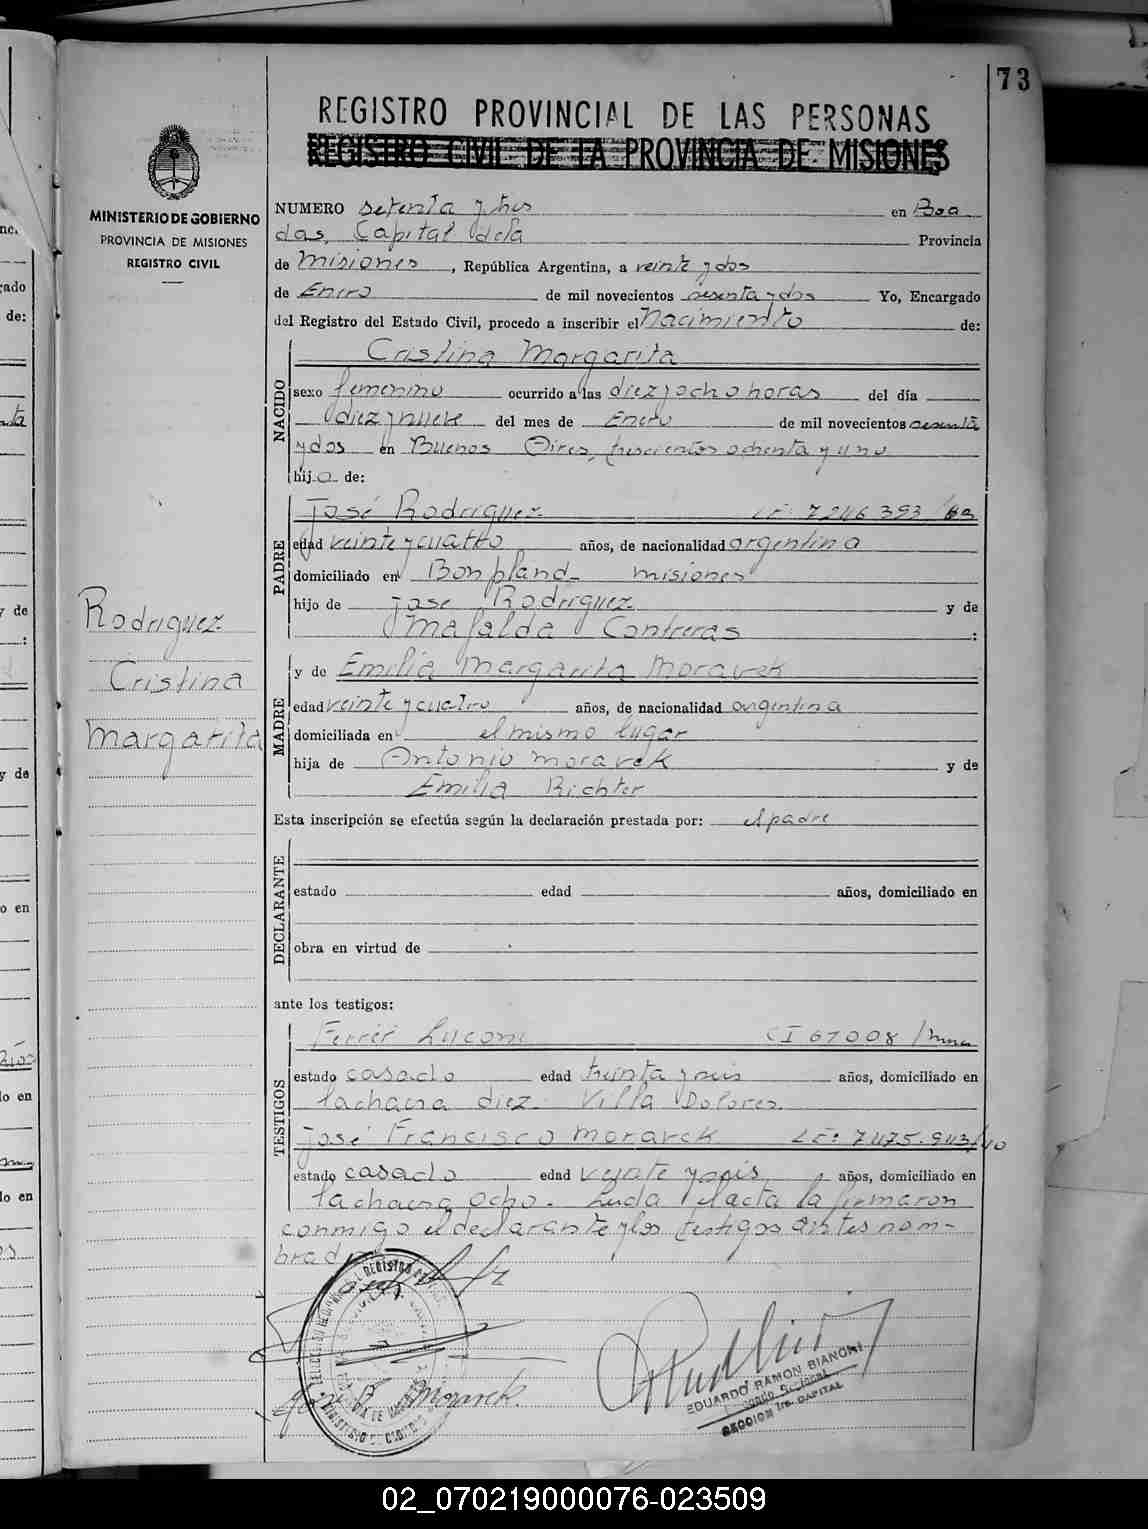 73
REGISTRO PROVINCIAL DE LAS PERSONAS
REGISTRO CIVIL DE LA PROVINCIA DE MISIONES
MINISTERIO DE GOBIERNO
PROVINCIA DE MISIONES
REGISTRO CIVIL
NUMERO Setenta y tres en Posa
das, Capital de la Provincia
de Misiones, República Argentina, a veinte y dos
de Enero de mil novecientos sesenta y dos Yo, Encargado
del Registro del Estado Civil, procedo a inscribir el Nacimiento de:
NACIDO
Cristina Margarita
sexo femenino ocurrido a las diez y ocho horas del día
diez y nueve del mes de Enero de mil novecientos sesenta
y dos en Buenos Aires, trescientos ochenta y uno
hija de:
PADRE
José Rodriguez LE: 7246393
edad veinte y cuatro años, de nacionalidad argentina
domiciliado en Bonpland - misiones
hijo de José Rodriguez y de
Mafalda Contreras :
MADRE
y de Emilia Margarita Moravek
edad veinte y cuatro años, de nacionalidad argentina
domiciliada en el mismo lugar
hija de Antonio Moravek y de
Emilia Richter
Rodriguez
Cristina
Margarita
Esta inscripción se efectúa según la declaración prestada por: el padre
DECLARANTE
estado edad años, domiciliado en
obra en virtud de
ante los testigos:
TESTIGOS
CI 67008
estado casado edad treinta y seis años, domiciliado en
la chacra diez. Villa Dolores.
José Francisco Moravek LE: 7475.943/40
estado casado edad veinte y seis años, domiciliado en
la chacra ocho. Leida el acta la firmaron
conmigo el declarante y los testigos antes nom-
brados
Moravek
EDUARDO RAMON BIANCHI
SECCION 1ra. CAPITAL
02_070219000076-023509